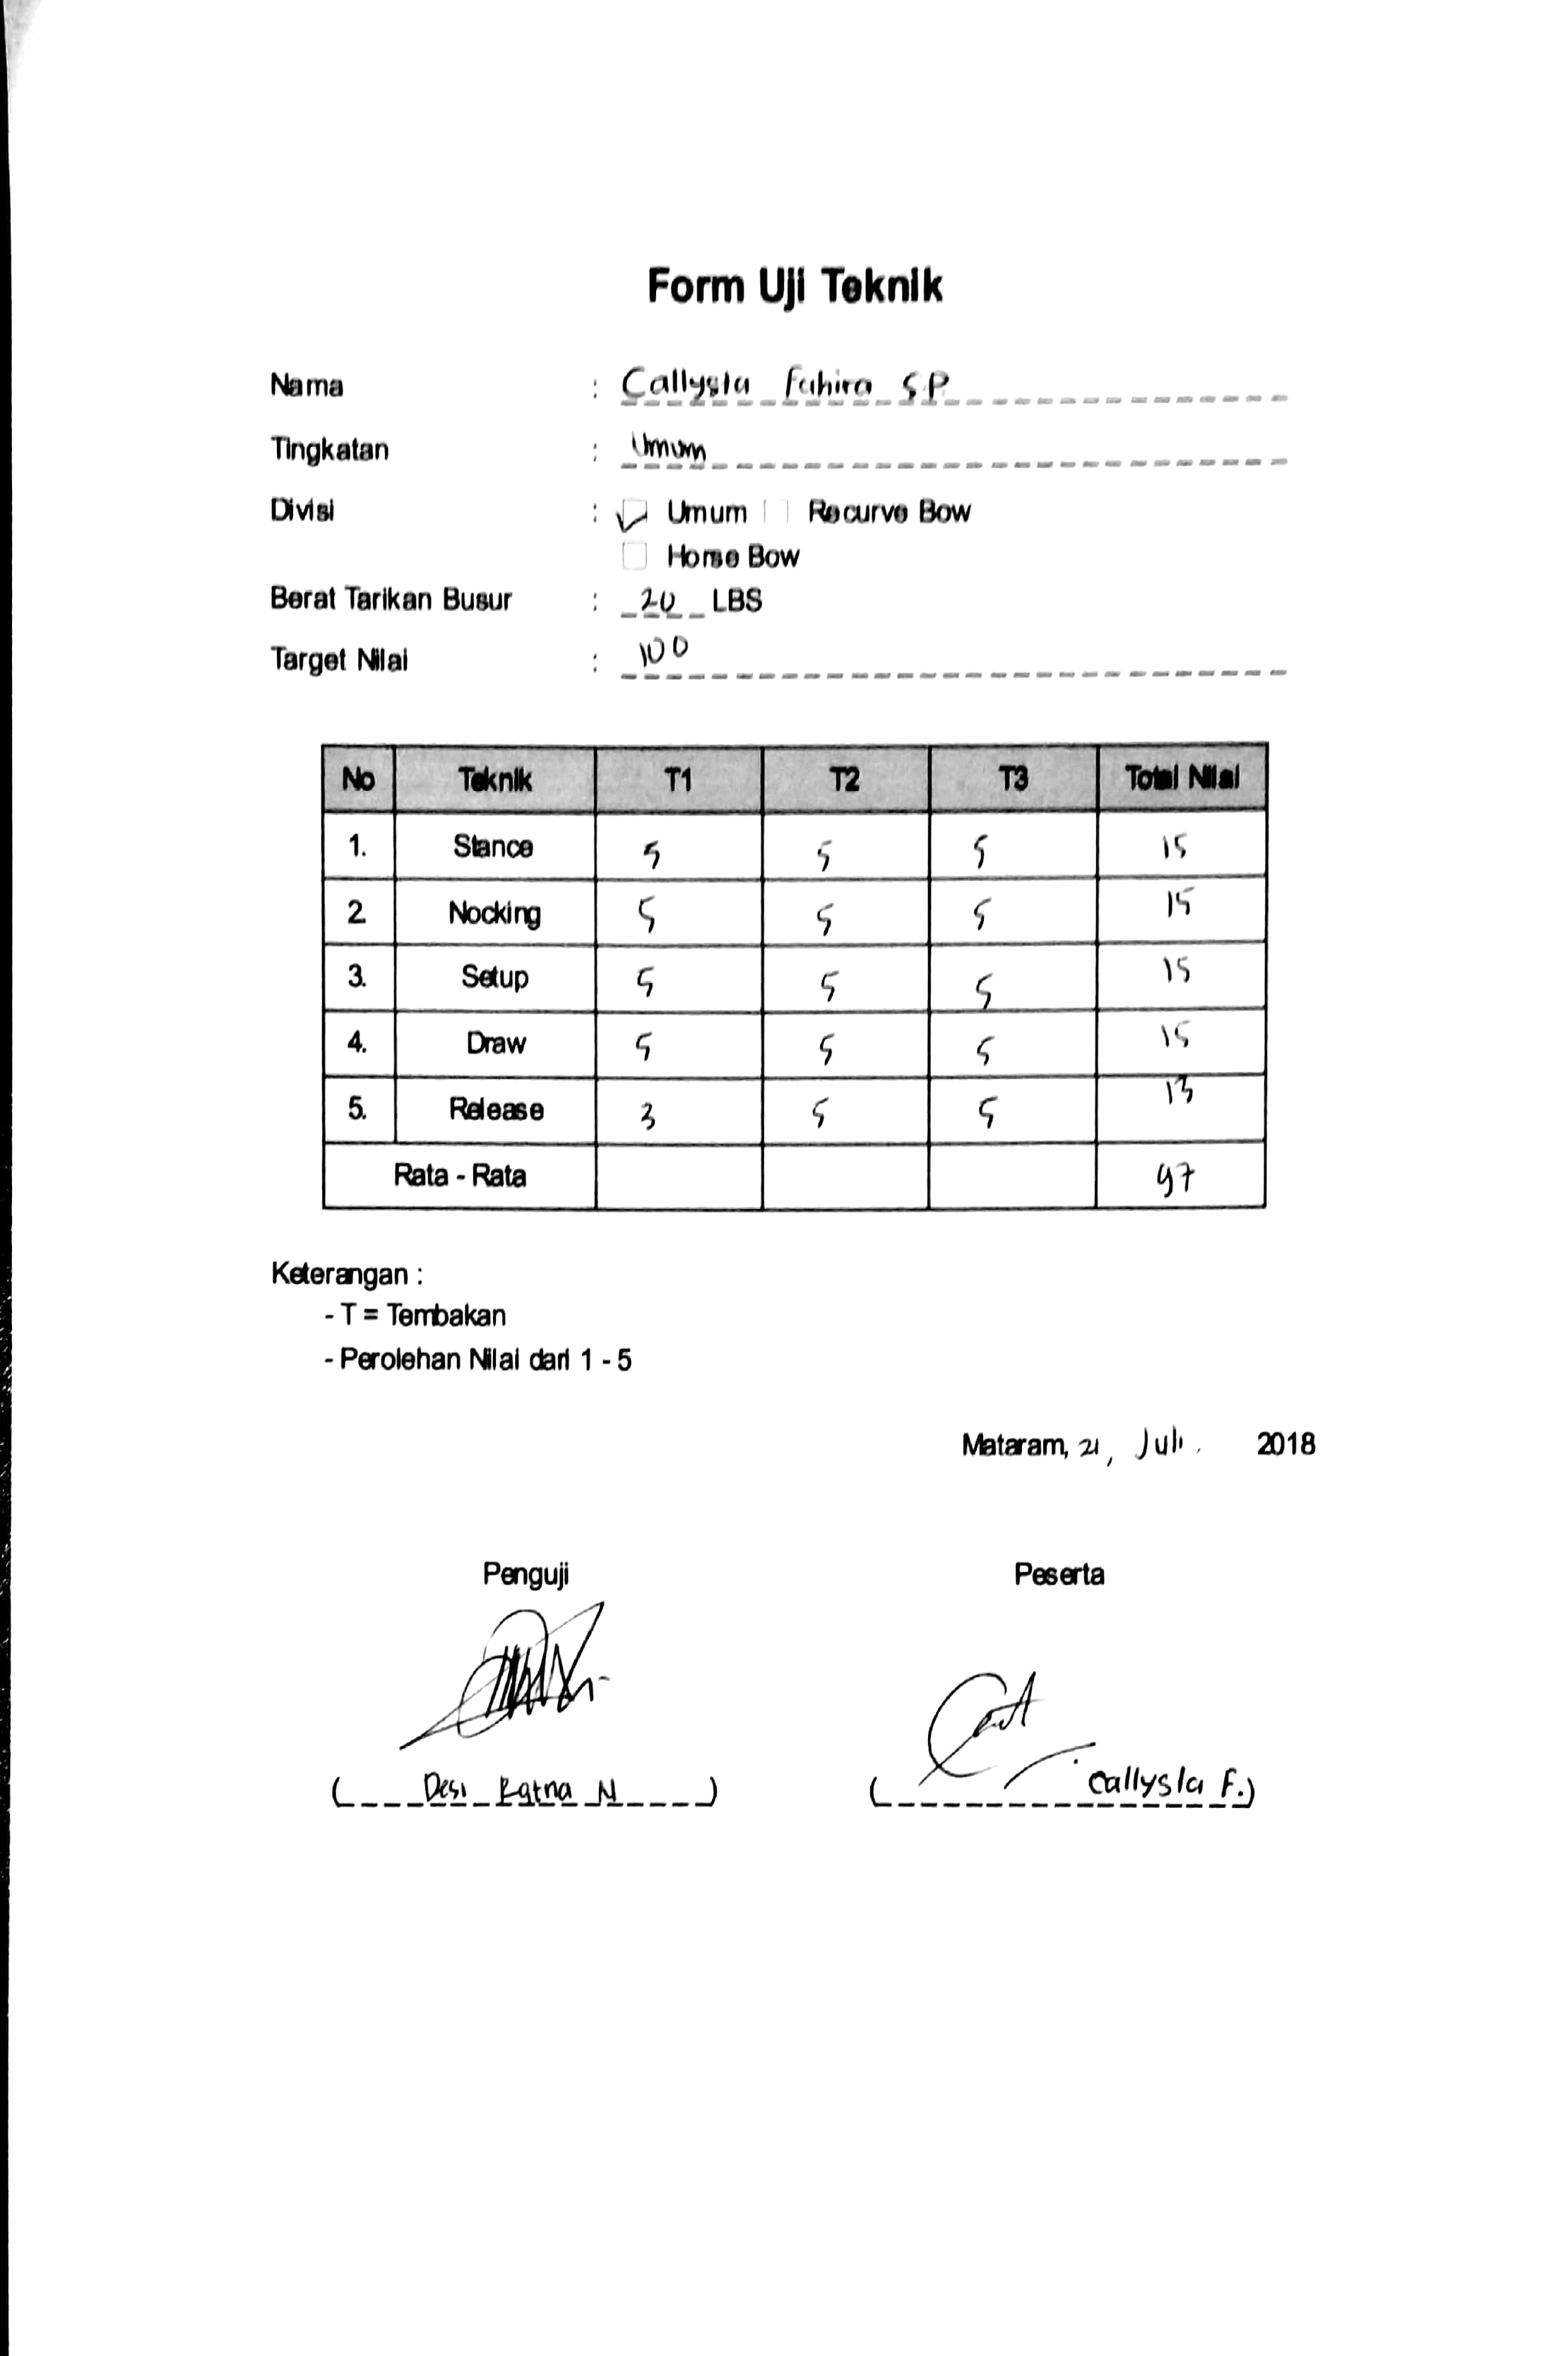 Form Uji Teknik
Nama : Callysta Fahira S.P
Tingkatan : Umum
Divisi : Umum Recurve Bow
Horse Bow
Berat Tarikan Busur : 20 LBS
Target Nilai : 100
No Teknik T1 T2 T3 Total Nilai
1. Stance 5 5 5 15
2. Nocking 5 5 5 15
3. Setup 5 5 5 15
4. Draw 5 5 5 15
5. Release 3 5 5 13
Rata - Rata 97
Keterangan :
- T = Tembakan
- Perolehan Nilai dari 1 - 5
Mataram, 21, Juli. 2018
Penguji Peserta
( Desi Ratna N ) ( Callysta F. )